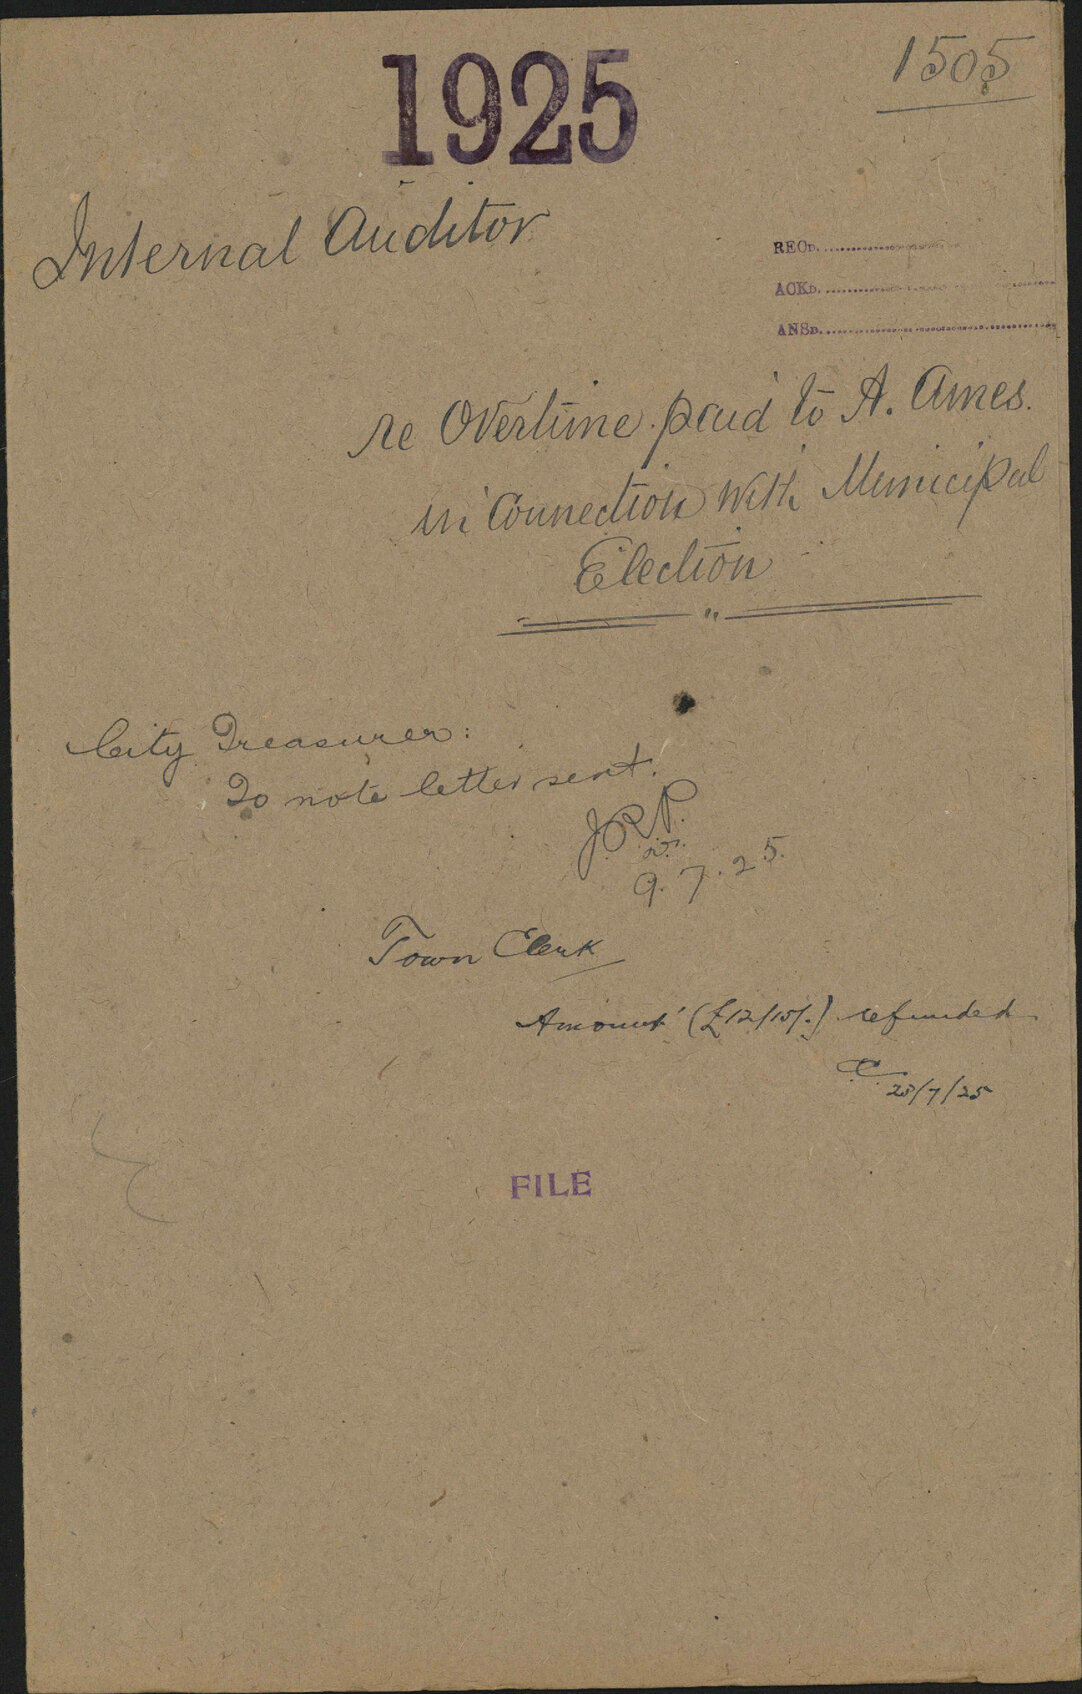 1505
1925
Internal Auditor
RECD.
ACKD.
ANSD.
re Overtime paid to A. Ames.
in Connection with Municipal
Election
City Treasurer:
To note letter sent.
J.R.P.
9.7.25.
Town Clerk
Amount (£12/15/-) refunded
23/7/25
FILE